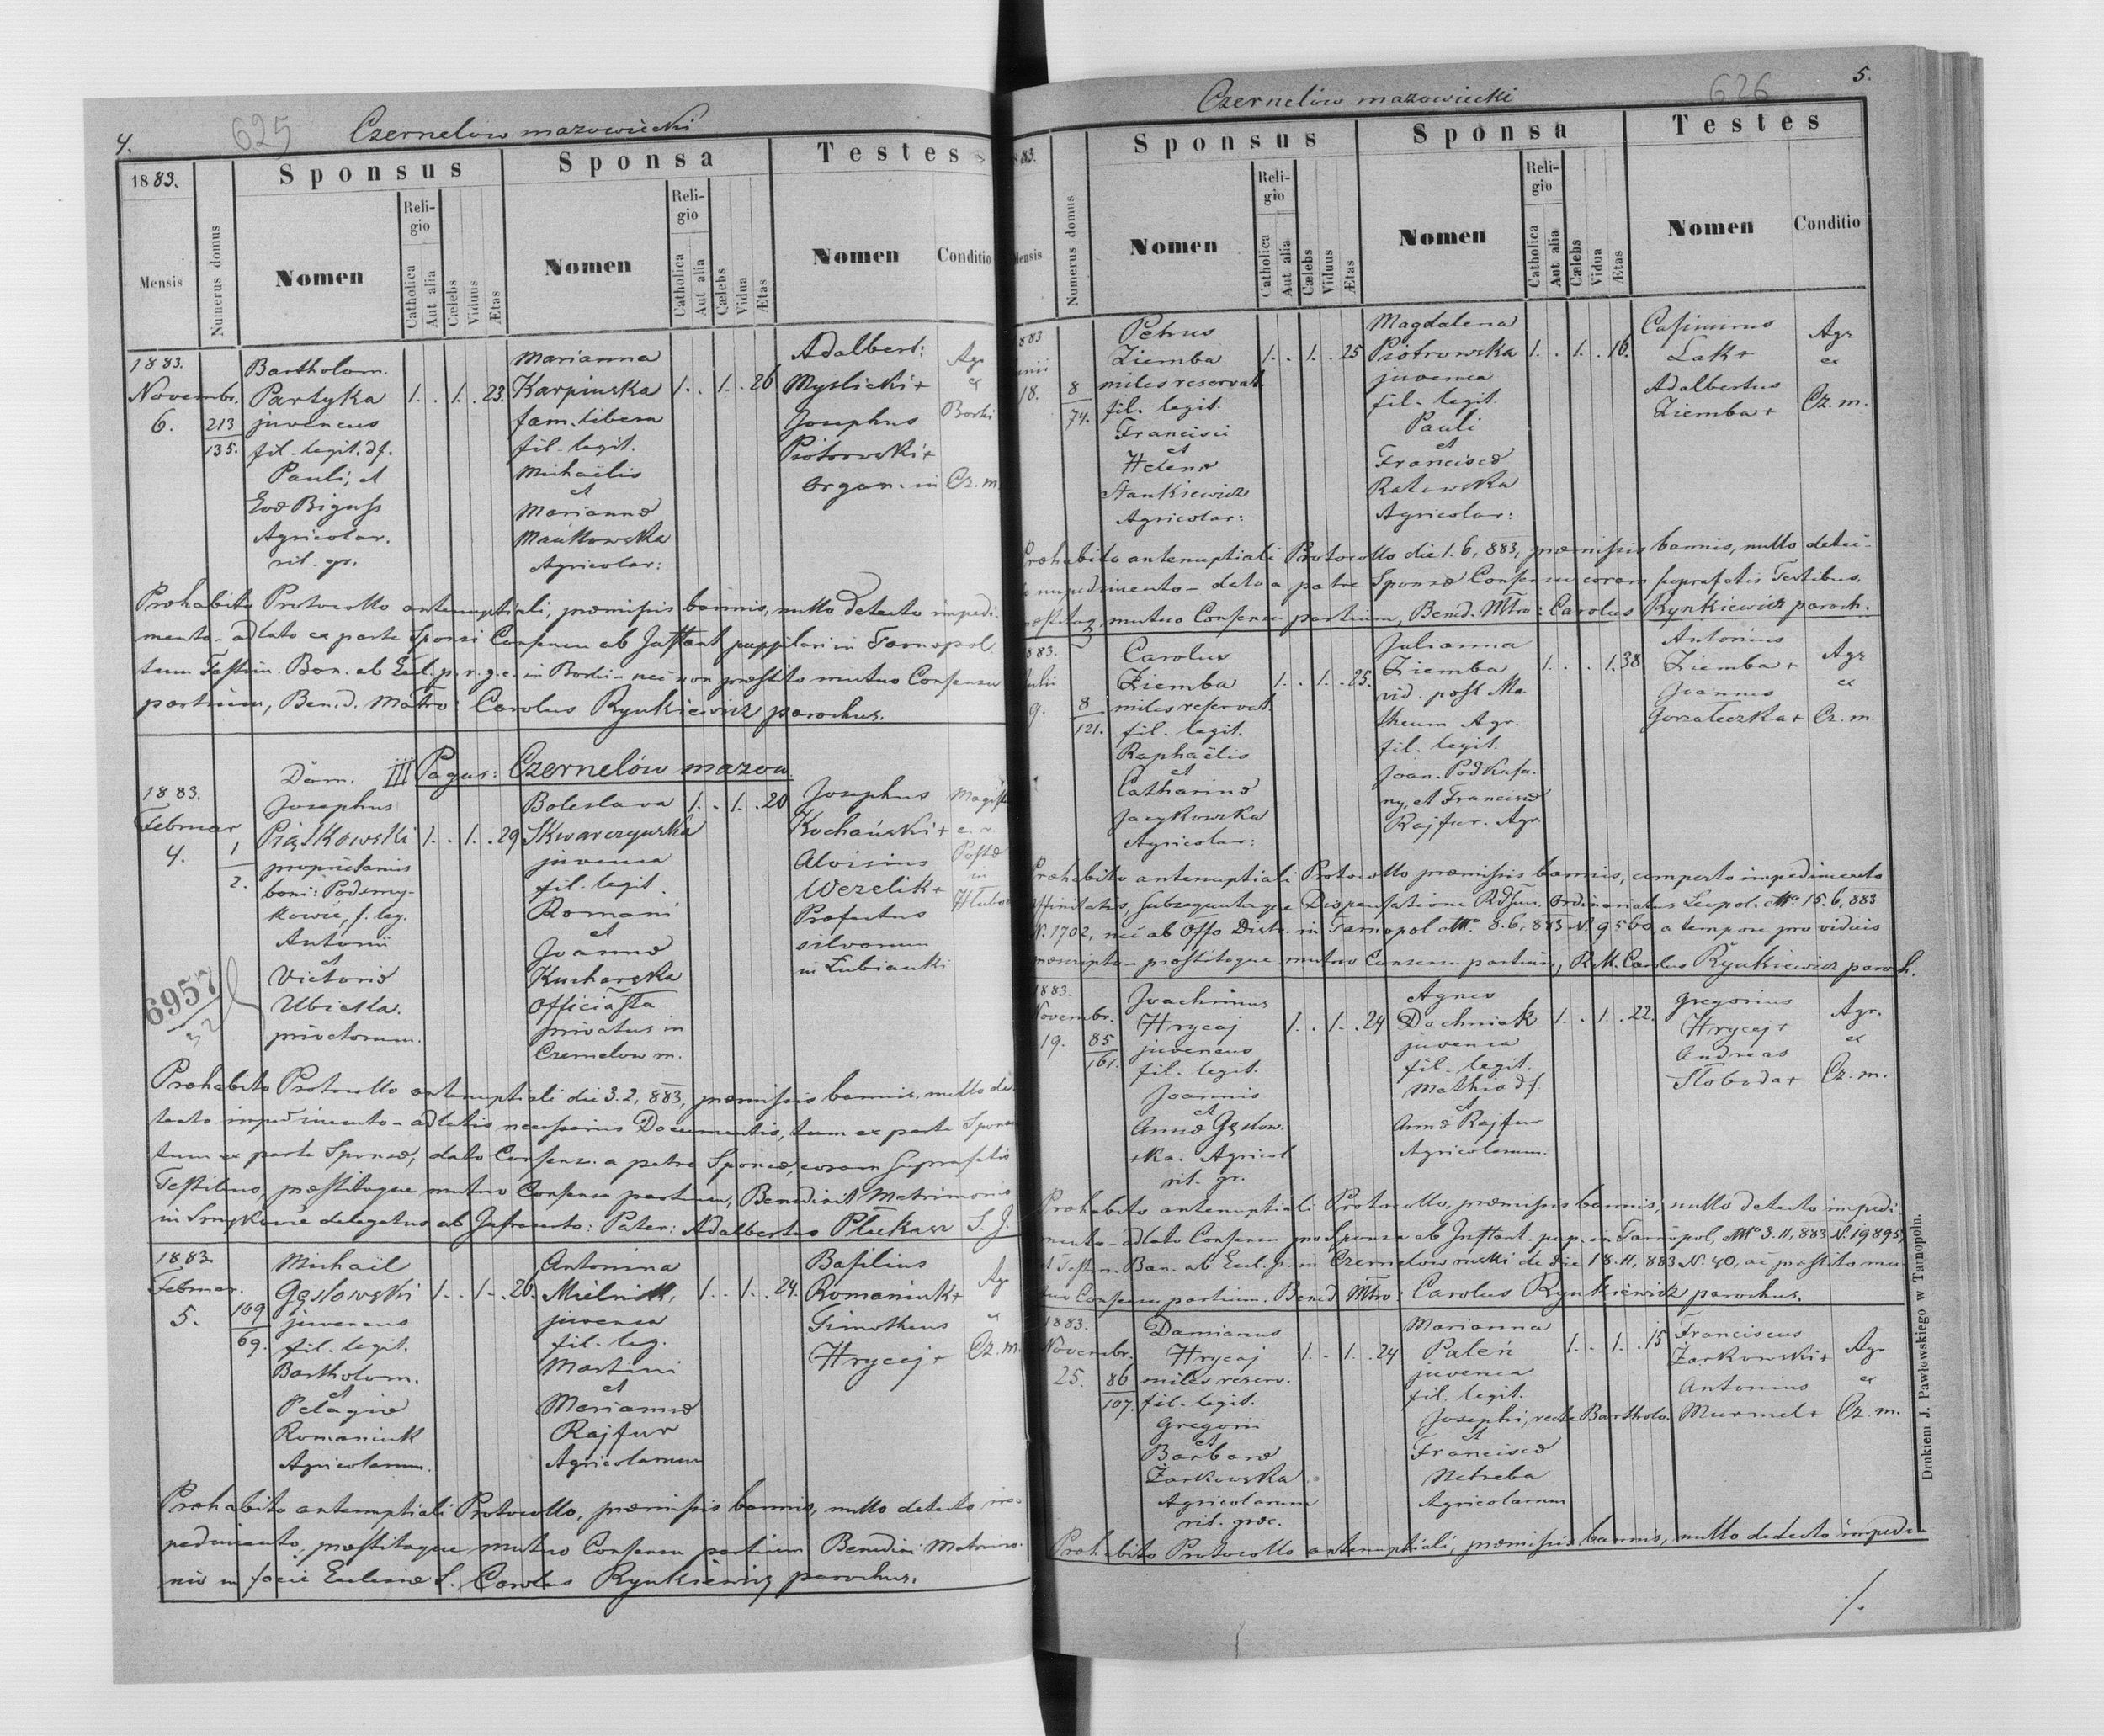 4.
625
Czernelów mazowiecki
1883.
Sponsus
Sponsa
Testes
Mensis
Numerus domus
Nomen
Religio
Catholica
Aut alia
Cælebs
Viduus
Ætas
Nomen
Religio
Catholica
Aut alia
Cælebs
Vidua
Ætas
Nomen
Conditio
1883.
Novembr.
6.
213
135.
Bartholom.
Partyka
juvencus
fil. legit. df.
Pauli, et
Evæ Biguss
Agricolar.
rit. gr.
1. . 1. . 23.
Marianna
Karpinska
fam. libera
fil. legit.
Michaëlis
et
Mariannæ
Mańkowska
Agricolar:
1. . 1. . 26
Adalbert:
Myslicki +
Josephus
Piotrowski +
organ. in
Agr
ex
Borki
Cz. m.
Præhabito Protocollo antenuptiali, præmissis bannis, nullo detecto impedi-
mento - adlato ex parte Sponsi Consensu ab Instant. puppilari in Tarnopol
tum Testim. Ban. ab Eccl. p. r. g. c. in Borki - nec non præstito mutuo Consensu
partium, Bened. Matro: Carolus Rynkiewicz parochus.
III Pagus: Czernelów mazow.
1883.
Februar.
4.
1
2.
Dom.
Josephus
Piątkowski
proprietarius
boni: Podsmy-
kowce, f. leg.
Antonii
et
Victoriæ
Ubieska.
privatorum.
1. . 1. . 29
Boleslava
Skwarczyńska
juvenca
fil. legit.
Romani
et
Joannæ
Kucharska
Officialista
privatus in
Czernelow m.
1. . 1. . 20
Josephus
Kochański +
Aloisius
Wezelik +
Præfectus
silvarum
in Łubianki
Postæ
in
6957
Præhabito Protocollo antenuptiali die 3. 2. 883, præmissis bannis, nullo de-
tecto impedimento - adlatis necessariis Documentis, tum ex parte Sponsi
tum ex parte Sponsæ, dato Consensu a patre Sponsæ, coram suprafatis
Testibus, præstitoque mutuo Consensu partium, Benedixit Matrimonio
in Smykowce delegatus ab Infrascripto: Pater: Adalbertus Plukasz S. J.
1883.
Februar.
5.
109
69.
Michaël
Gęsłowski
juvencus
fil. legit.
Bartholom.
et
Pelagiæ
Romaniuk
Agricolarum.
1. . 1. . 26.
Antonina
Mielnik,
juvenca
fil. leg.
Martini
et
Mariannæ
Rajfur
Agricolarum
1. . 1. . 24.
Basilius
Romaniuk +
Timotheus
Hrycaj +
Agr
ex
Cz. m.
Præhabito antenuptiali Protocollo, præmissis bannis, nullo detecto im-
pedimento, præstitoque mutuo Consensu partium Benedixi Matrimo-
nio in facie Ecclesiæ S. Carolus Rynkiewicz parochus.
5.
626
Czernelów mazowiecki
83.
Sponsus
Sponsa
Testes
Mensis
Numerus domus
Nomen
Religio
Catholica
Aut alia
Cælebs
Viduus
Ætas
Nomen
Religio
Catholica
Aut alia
Cælebs
Vidua
Ætas
Nomen
Conditio
883
18.
8
74.
Petrus
Ziemba
miles reservat.
fil. legit.
Francisci
et
Helenæ
Stankiewicz
Agricolar:
1. . 1. . 25
Magdalena
Piotrowska
juvenca
fil. legit.
Pauli
et
Franciscæ
Ratowska
Agricolar:
1. . 1. . 16.
Casimirus
Lak +
Adalbertus
Ziemba +
Agr
ex
Cz. m.
Præhabito antenuptiali Protocollo die 1. 6, 883, præmissis bannis, nullo detec-
to impedimento - dato a patre Sponsæ Consensu coram suprafatis Testibus,
præstitoq. mutuo Consensu partium, Bened. Mtro: Carolus Rynkiewicz paroch.
883.
Julii
9.
8
121.
Carolus
Ziemba
miles reservat.
fil. legit.
Raphaëlis
et
Catharinæ
Jacykowska
Agricolar:
1. . 1. . 25.
Julianna
Ziemba
vid. post Ma-
theum Agr.
fil. legit.
Joan. Podkasa-
ny, et Franciscæ
Rajfur. Agr.
1. . . 1. 38
Antonius
Ziemba +
Joannes
Gorzaleczka +
Agr
ex
Cz. m.
Præhabito antenuptiali Protocollo præmissis bannis, comperto impedimento
affinitatis, subsequutaque Dispensatione Rdssmi. Ordinariatus Leopol. dtto 15. 6, 883
N. 1702, nec ab Offo Distr. in Tarnopol dtto 8. 6, 883 N. 9560, a tempore pro viduis
præscripto - præstitoque mutuo Consensu partium, B. M. Carolus Rynkiewicz paroch.
1883.
Novembr.
19.
85
161.
Joachimus
Hrycaj
juvencus
fil. legit.
Joannis
et
Annæ Gęsłow-
ska. Agricol
rit. gr.
1. . 1. . 24
Agnes
Dochniak
juvenca
fil. legit.
Mathiæ df.
et
Annæ Rajfur
Agricolarum.
1. . 1. . 22.
Gregorius
Hrycaj +
Andreas
Słoboda +
Agr.
ex
Cz. m.
Præhabito antenuptiali Protocollo, præmissis bannis, nullo detecto impedi-
mento - adlato Consensu pro Sponsa ab Instant. pup. in Tarnopol, dtto 3. 11, 883 N. 19895,
et Testim. Ban. ab Eccl. p. in Czernelow ruski de die 18. 11, 883 N. 40, ac præstito mu-
tuo Consensu partium. Bened. Mtro: Carolus Rynkiewicz parochus.
1883.
Novembr.
25.
86
107.
Damianus
Hrycaj
miles reserv.
fil. legit.
Gregorii
et
Barbaræ
Żarkowska
Agricolarum
rit. græc.
1. . 1. . 24
Marianna
Paleń
juvenca
fil. legit.
Josephi, recte Bartholo.
et
Franciscæ
Netreba
Agricolarum
1. . 1. . 15
Franciscus
Żarkowski +
Antonius
Murmel +
Agr
ex
Cz. m.
Præhabito Protocollo antenuptiali, præmissis bannis, nullo detecto impedi-
./.
Drukiem J. Pawłowskiego w Tarnopolu.